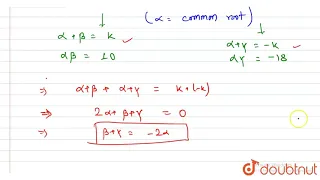 (α = common root)
α + β = k
α + γ = -k
αβ = 10
αγ = -18
⇒ α+β + α+γ = k+(-k)
⇒ 2α + β+γ = 0
⇒ β+γ = -2α
doubtnut